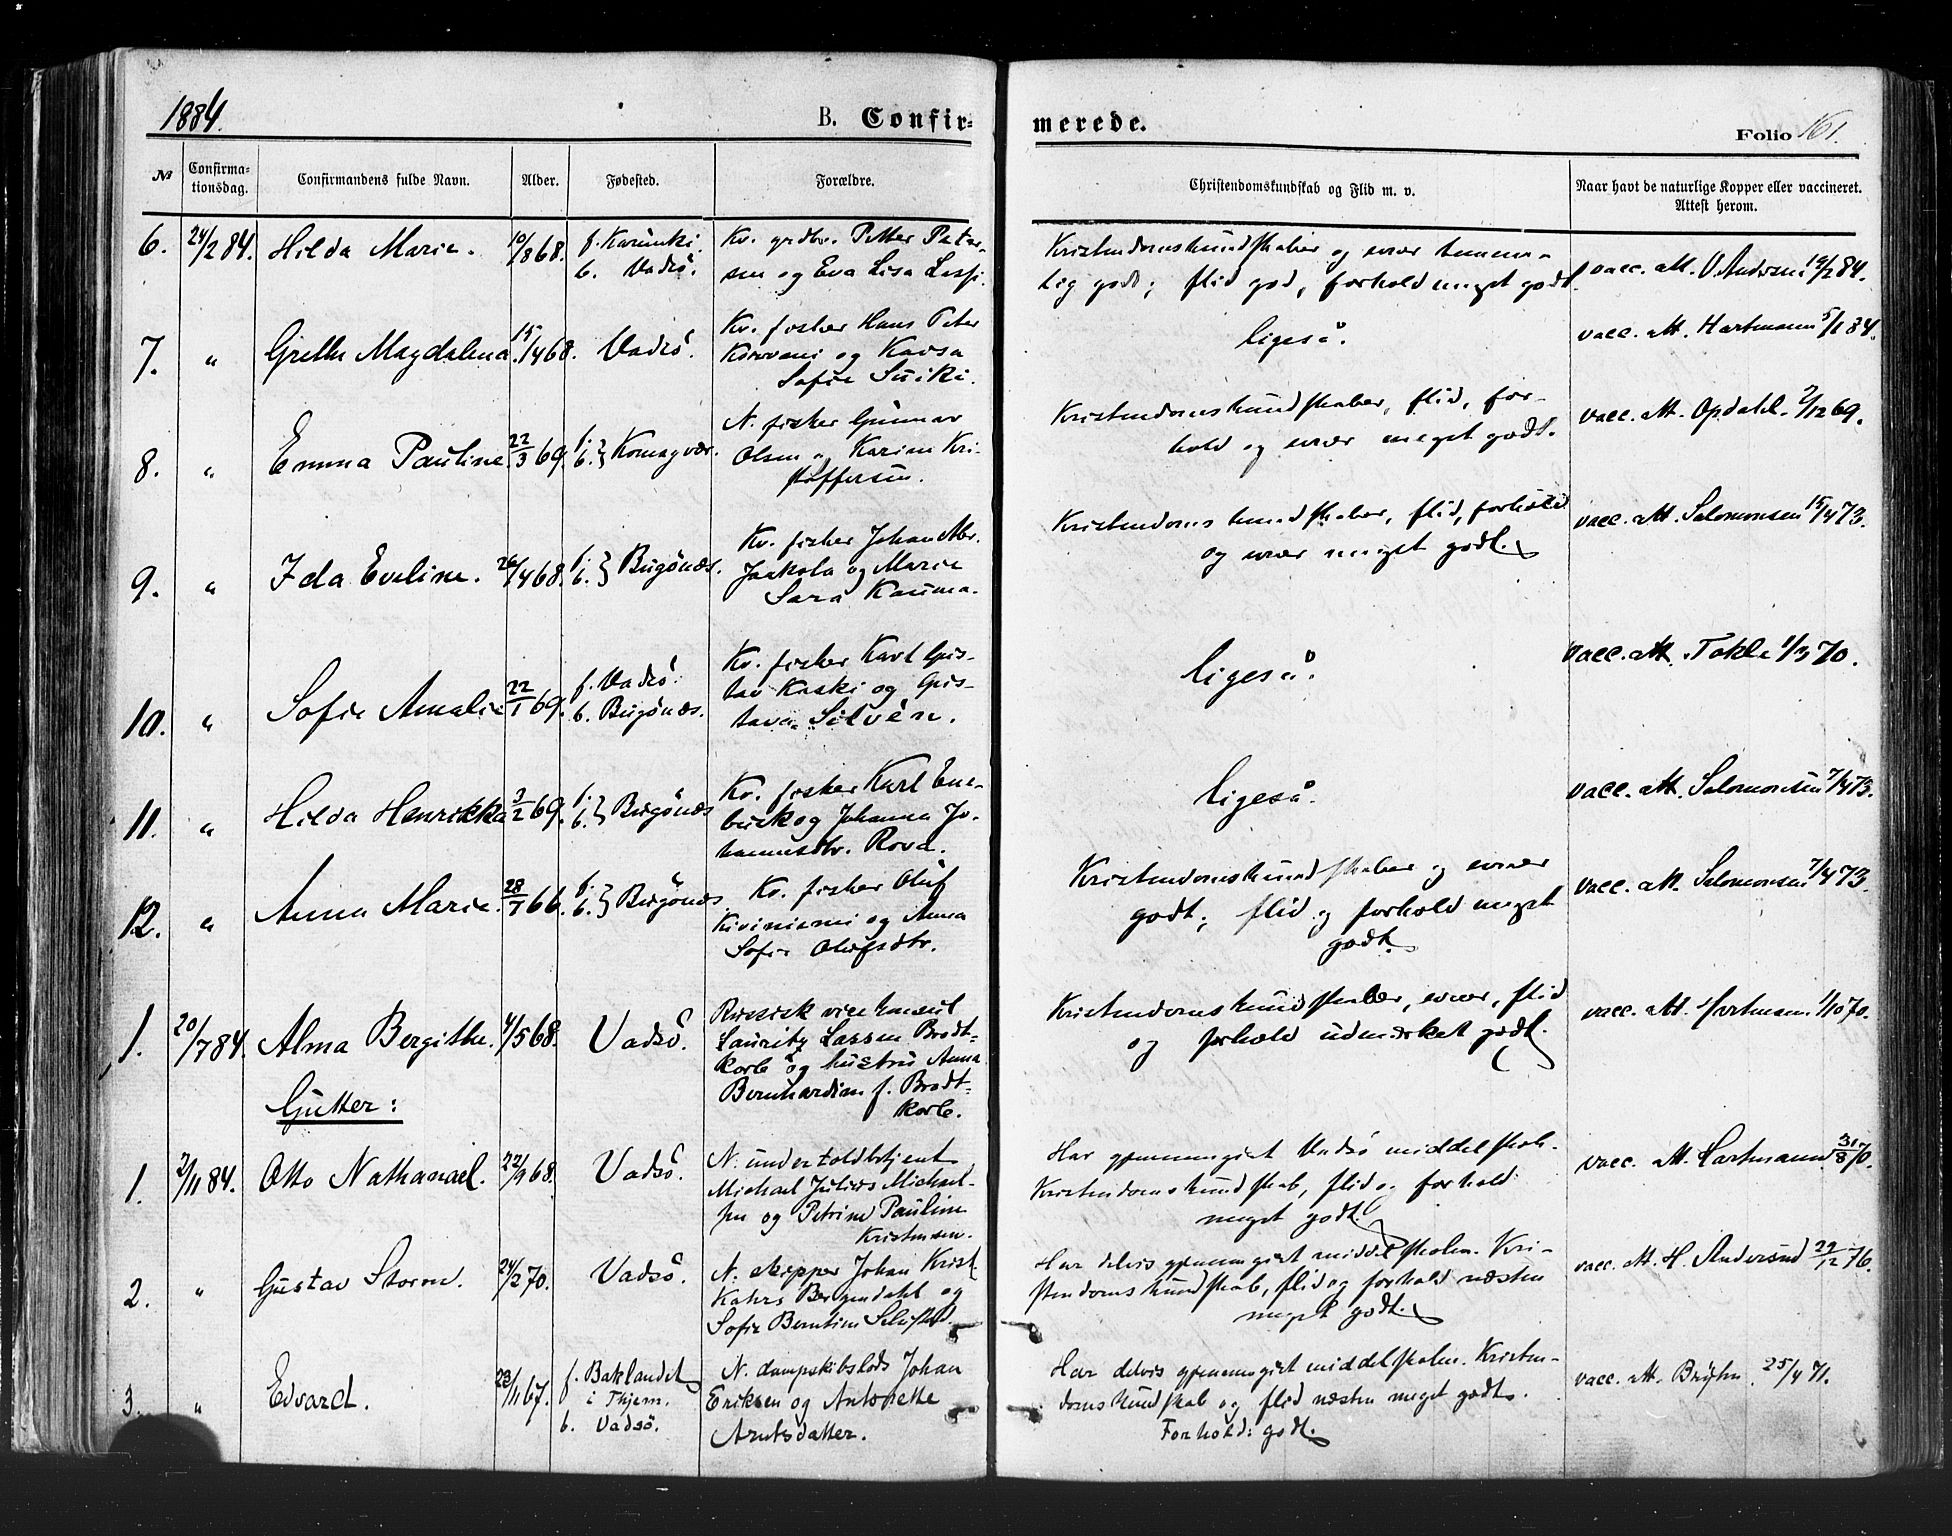 1884.
B. Confir-
merede.
Folio 161.
No
Confirma-
tionsdag.
Confirmandens fulde Navn.
Alder.
Fødested.
Forældre.
Christendomskundskab og Flid m. v.
Naar havt de naturlige Kopper eller vaccineret.
Attest herom.
6. 24/2 84. Hilda Marie. 10/8 68. f. Karunki. b. Vadsö.
Kv. grdbr. Petter Peter-
sen og Eva Lisa
Kristendomskundskaber og evner temme-
lig godt; flid god, forhold meget godt.
vacc. att. O. Andersen 19/2 84.
7. " Grethe Magdalena. 15/4 68. Vadsö.
Kv. fisker Hans Peter
Korvani og Kaisa
Sofie Suiki.
ligeså.
vacc. att. Hartmann 5/1 84.
8. " Emma Pauline. 22/3 69. f. b. } Komagvær.
N. fisker Gunnar
Olsen og Karine Kri-
stoffersen.
Kristendomskundskaber, flid, for-
hold og evner meget godt.
vacc. att. Opdahl. 2/12 69.
9. " Ida Eveline. 26/4 68. f. b. } Bugönæs.
Kv. fisker Johan Abr.
Jaakola og Marie
Sara Kauma.
Kristendomskundskaber, flid, forhold
og evner meget godt.
vacc. att. Salomonsen 15/4 73.
10. " Sofie Amalie 22/1 69. f. Vadsö. b. Bugönæs.
Kv. fisker Karl Gus-
tav Kaski og Gus-
tava Silvén.
ligeså.
vacc. att. Tokle 1/3 70.
11. " Hilda Henrikka 3/2 69. f. b. } Bugönæs
Kv. fisker Karl Ene-
busk og Johanna Jo-
hannesdtr. Rova.
ligeså.
vacc. att. Salomonsen 7/4 73.
12. " Anna Marie. 28/7 66. f. b. } Bugönæs
Kv. fisker Oluf
Kiviniemi og Anna
Sofie Olufsdtr.
Kristendomskundskaber og evner
godt; flid og forhold meget
godt.
vacc. att. Salomonsen 7/4 73.
1. 20/7 84. Alma Bergithe. 4/5 68. Vadsö.
Russisk vicekonsul
Lauritz Lassen Brodt-
korb og hustru Anna
Bernhardine f. Brodt-
korb.
Kristendomskundskaber, evner, flid
og forhold udmærket godt.
vacc. att. Hartmann 1/10 70.
Gutter:
1. 2/11 84. Otto Nathanael. 22/9 68. Vadsö.
N. undertoldbetjent
Michael Julius Michael-
sen og Petrine Pauline
Kristensen.
Har gjennemgået Vadsö middelskole.
Kristendomskundskab, flid og forhold
meget godt.
vacc. att. Hartmann 31/8 70.
2. " Gustav Storm. 24/2 70. Vadsö.
N. skipper Johan Krist.
Kahrs Bergendahl og
Sofie Berntine
Har delvis gjennemgået middelskolen. Kri-
stendomskundskab, flid og forhold næsten
meget godt.
vacc. att. H. Andersen 29/12 76.
3. " Edvard. 23/11 67. f. Baklandet i Thjem. b. Vadsö.
N. dampskibslods Johan
Eriksen og Antonette
Arntsdatter.
Har delvis gjennemgået middelskolen. Kristen-
domskundskab og flid næsten meget godt.
Forhold: godt.
vacc. att. 25/4 71.